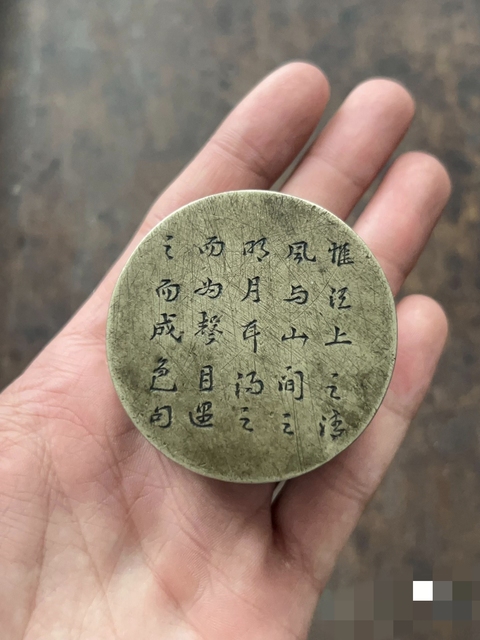 惟江上之清
风与山间之
明月耳得之
而为聲目遇
之而成色句